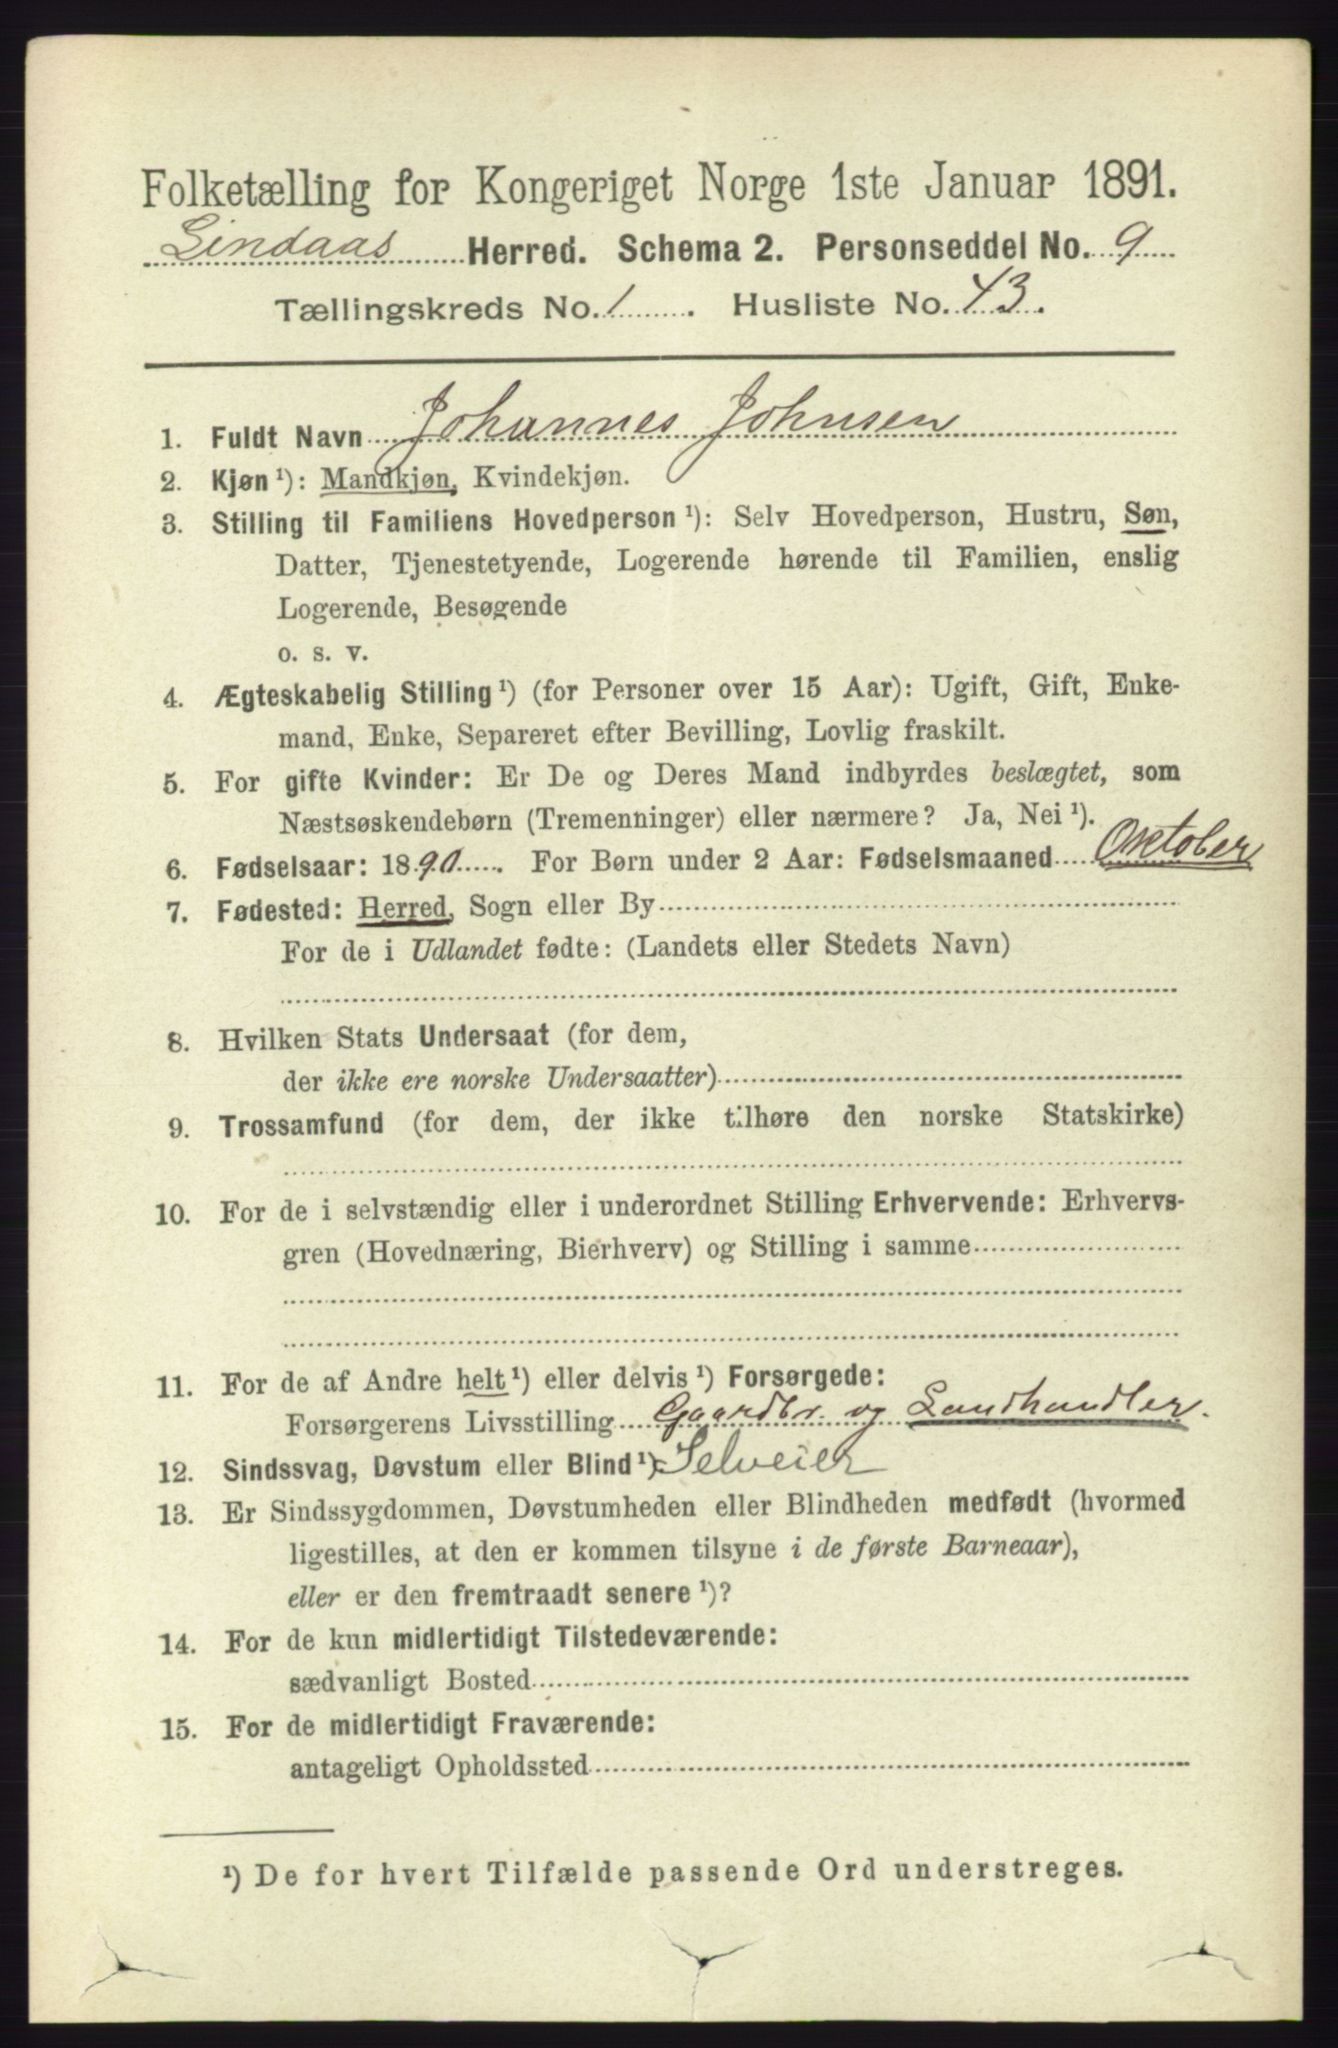 Folketælling for Kongeriget Norge 1ste Januar 1891.
Lindaas Herred. Schema 2. Personseddel No. 9
Tællingskreds No. 1. Husliste No. 43.
1. Fuldt Navn Johannes Johnsen
2. Kjøn ¹): Mandkjøn, Kvindekjøn.
3. Stilling til Familiens Hovedperson ¹): Selv Hovedperson, Hustru, Søn,
Datter, Tjenestetyende, Logerende hørende til Familien, enslig
Logerende, Besøgende
o. s. v.
4. Ægteskabelig Stilling ¹) (for Personer over 15 Aar): Ugift, Gift, Enke-
mand, Enke, Separeret efter Bevilling, Lovlig fraskilt.
5. For gifte Kvinder: Er De og Deres Mand indbyrdes beslægtet, som
Næstsøskendebørn (Tremenninger) eller nærmere? Ja, Nei ¹).
6. Fødselsaar: 1890. For Børn under 2 Aar: Fødselsmaaned Oktober
7. Fødested: Herred, Sogn eller By
For de i Udlandet fødte: (Landets eller Stedets Navn)
8. Hvilken Stats Undersaat (for dem,
der ikke ere norske Undersaatter)
9. Trossamfund (for dem, der ikke tilhøre den norske Statskirke)
10. For de i selvstændig eller i underordnet Stilling Erhvervende: Erhvervs-
gren (Hovednæring, Bierhverv) og Stilling i samme
11. For de af Andre helt ¹) eller delvis ¹) Forsørgede:
Forsørgerens Livsstilling Gaardbr. og Landhandler.
12. Sindssvag, Døvstum eller Blind ¹). Selveier
13. Er Sindssygdommen, Døvstumheden eller Blindheden medfødt (hvormed
ligestilles, at den er kommen tilsyne i de første Barneaar),
eller er den fremtraadt senere ¹)?
14. For de kun midlertidigt Tilstedeværende:
sædvanligt Bosted
15. For de midlertidigt Fraværende:
antageligt Opholdssted
¹) De for hvert Tilfælde passende Ord understreges.